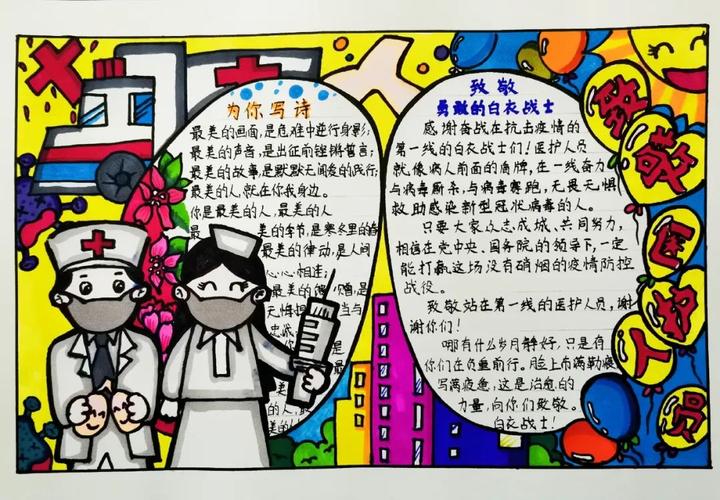 为你写诗
最美的画面,是危难中逆行身影;
最美的声音,是出征前铿锵誓言;
最美的故事,是默默无闻爱的践行;
最美的人,就在你我身边。
你是最美的人,最美的人
最
美的季节,是寒冬里的
最美的律动,是人间
心心相连;
最美的
无悔
当与
忠诚
是
最美的
的人,最
致敬
勇敢的白衣战士
感谢奋战在抗击疫情的
第一线的白衣战士们!医护人员
就像病人前面的盾牌,在一线奋力
与病毒厮杀,与病毒赛跑,无畏无惧
救助感染新型冠状病毒的人。
只要大家众志成城、共同努力,
相信在党中央、国务院的领导下,一定
能打赢这场没有硝烟的疫情防控
战役。
致敬站在第一线的医护人员,谢
谢你们!
哪有什么岁月静好,只是有
你们在负重前行。脸上布满勒痕
写满疲惫,这是治愈的
力量,向你们致敬。
白衣战士!
致敬医护人员